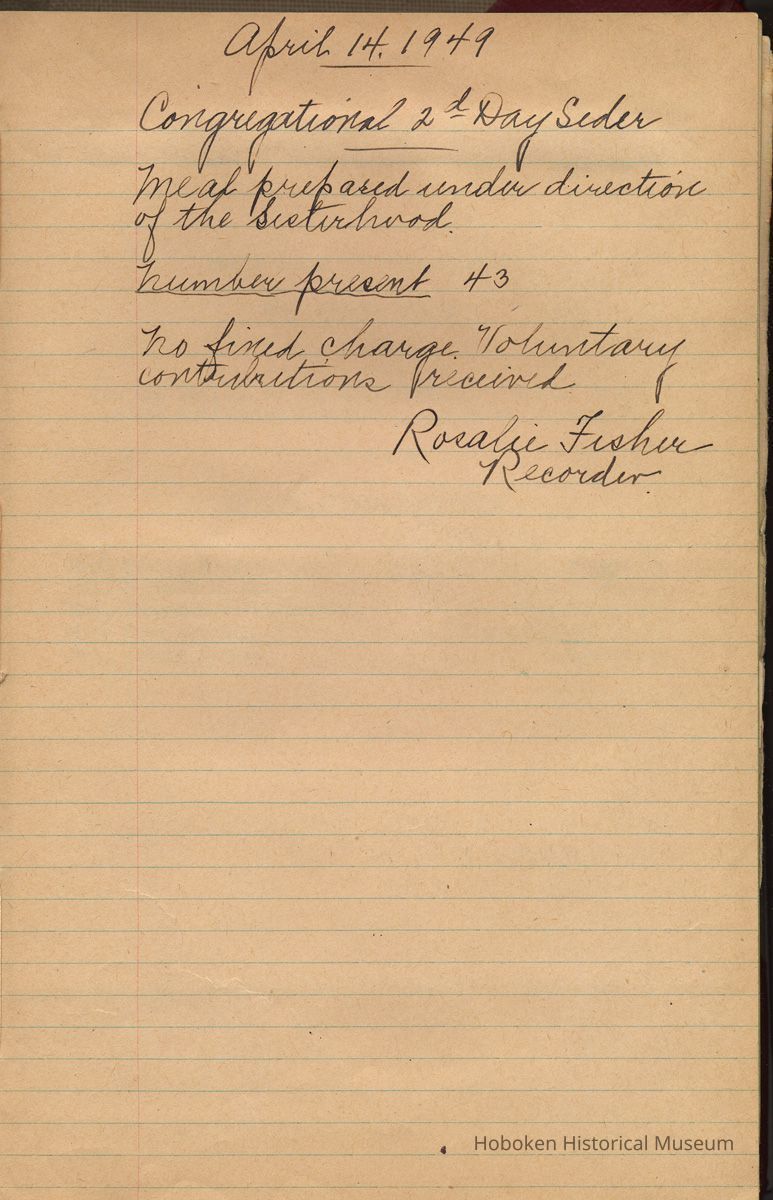 April 14. 1949
Congregational 2d Day Seder
Meal prepared under direction
of the Sisterhood.
Number present 43
No fixed charge. Voluntary
contributions received
Rosalie Fisher
Recorder.
Hoboken Historical Museum